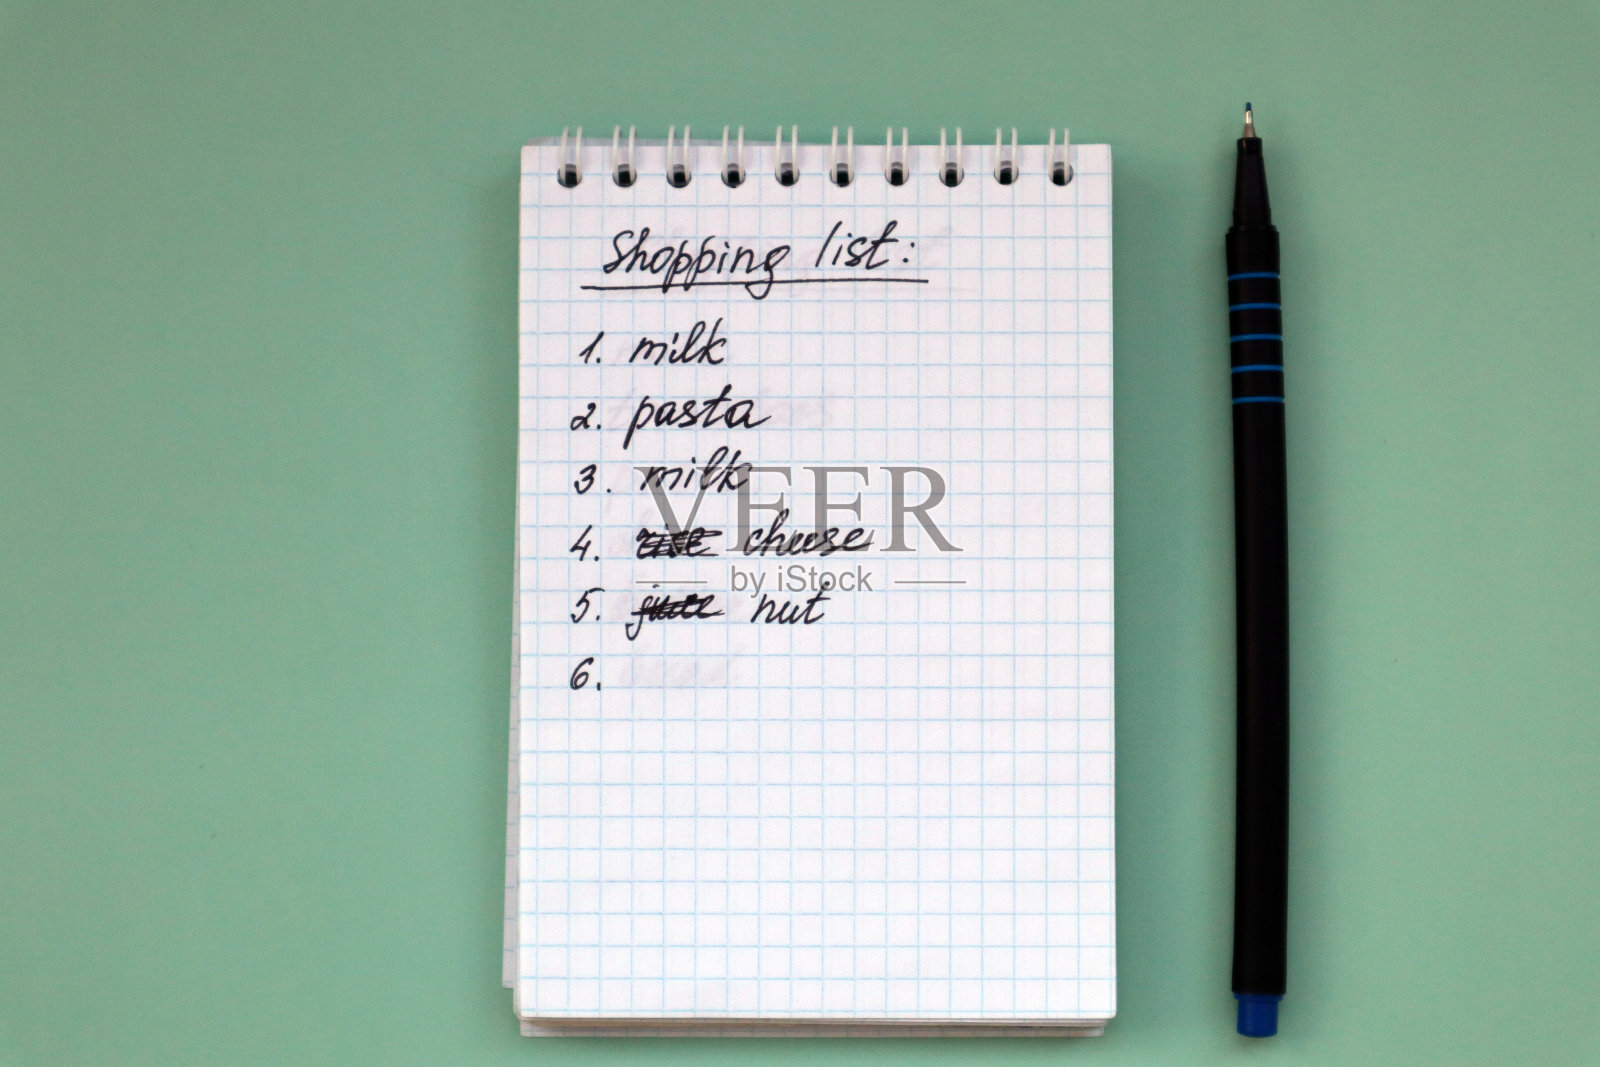 Shopping list:
1. milk
2. pasta
3. milk
4. rice cheese
5. juice nut
6.
VEER
by iStock